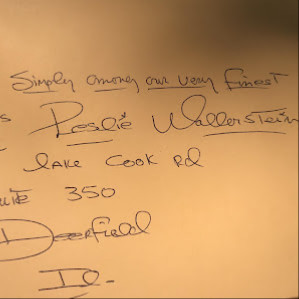 Simply among our very finest
Leslie Wallerstein
lake Cook Rd
350
Deerfield
Il.